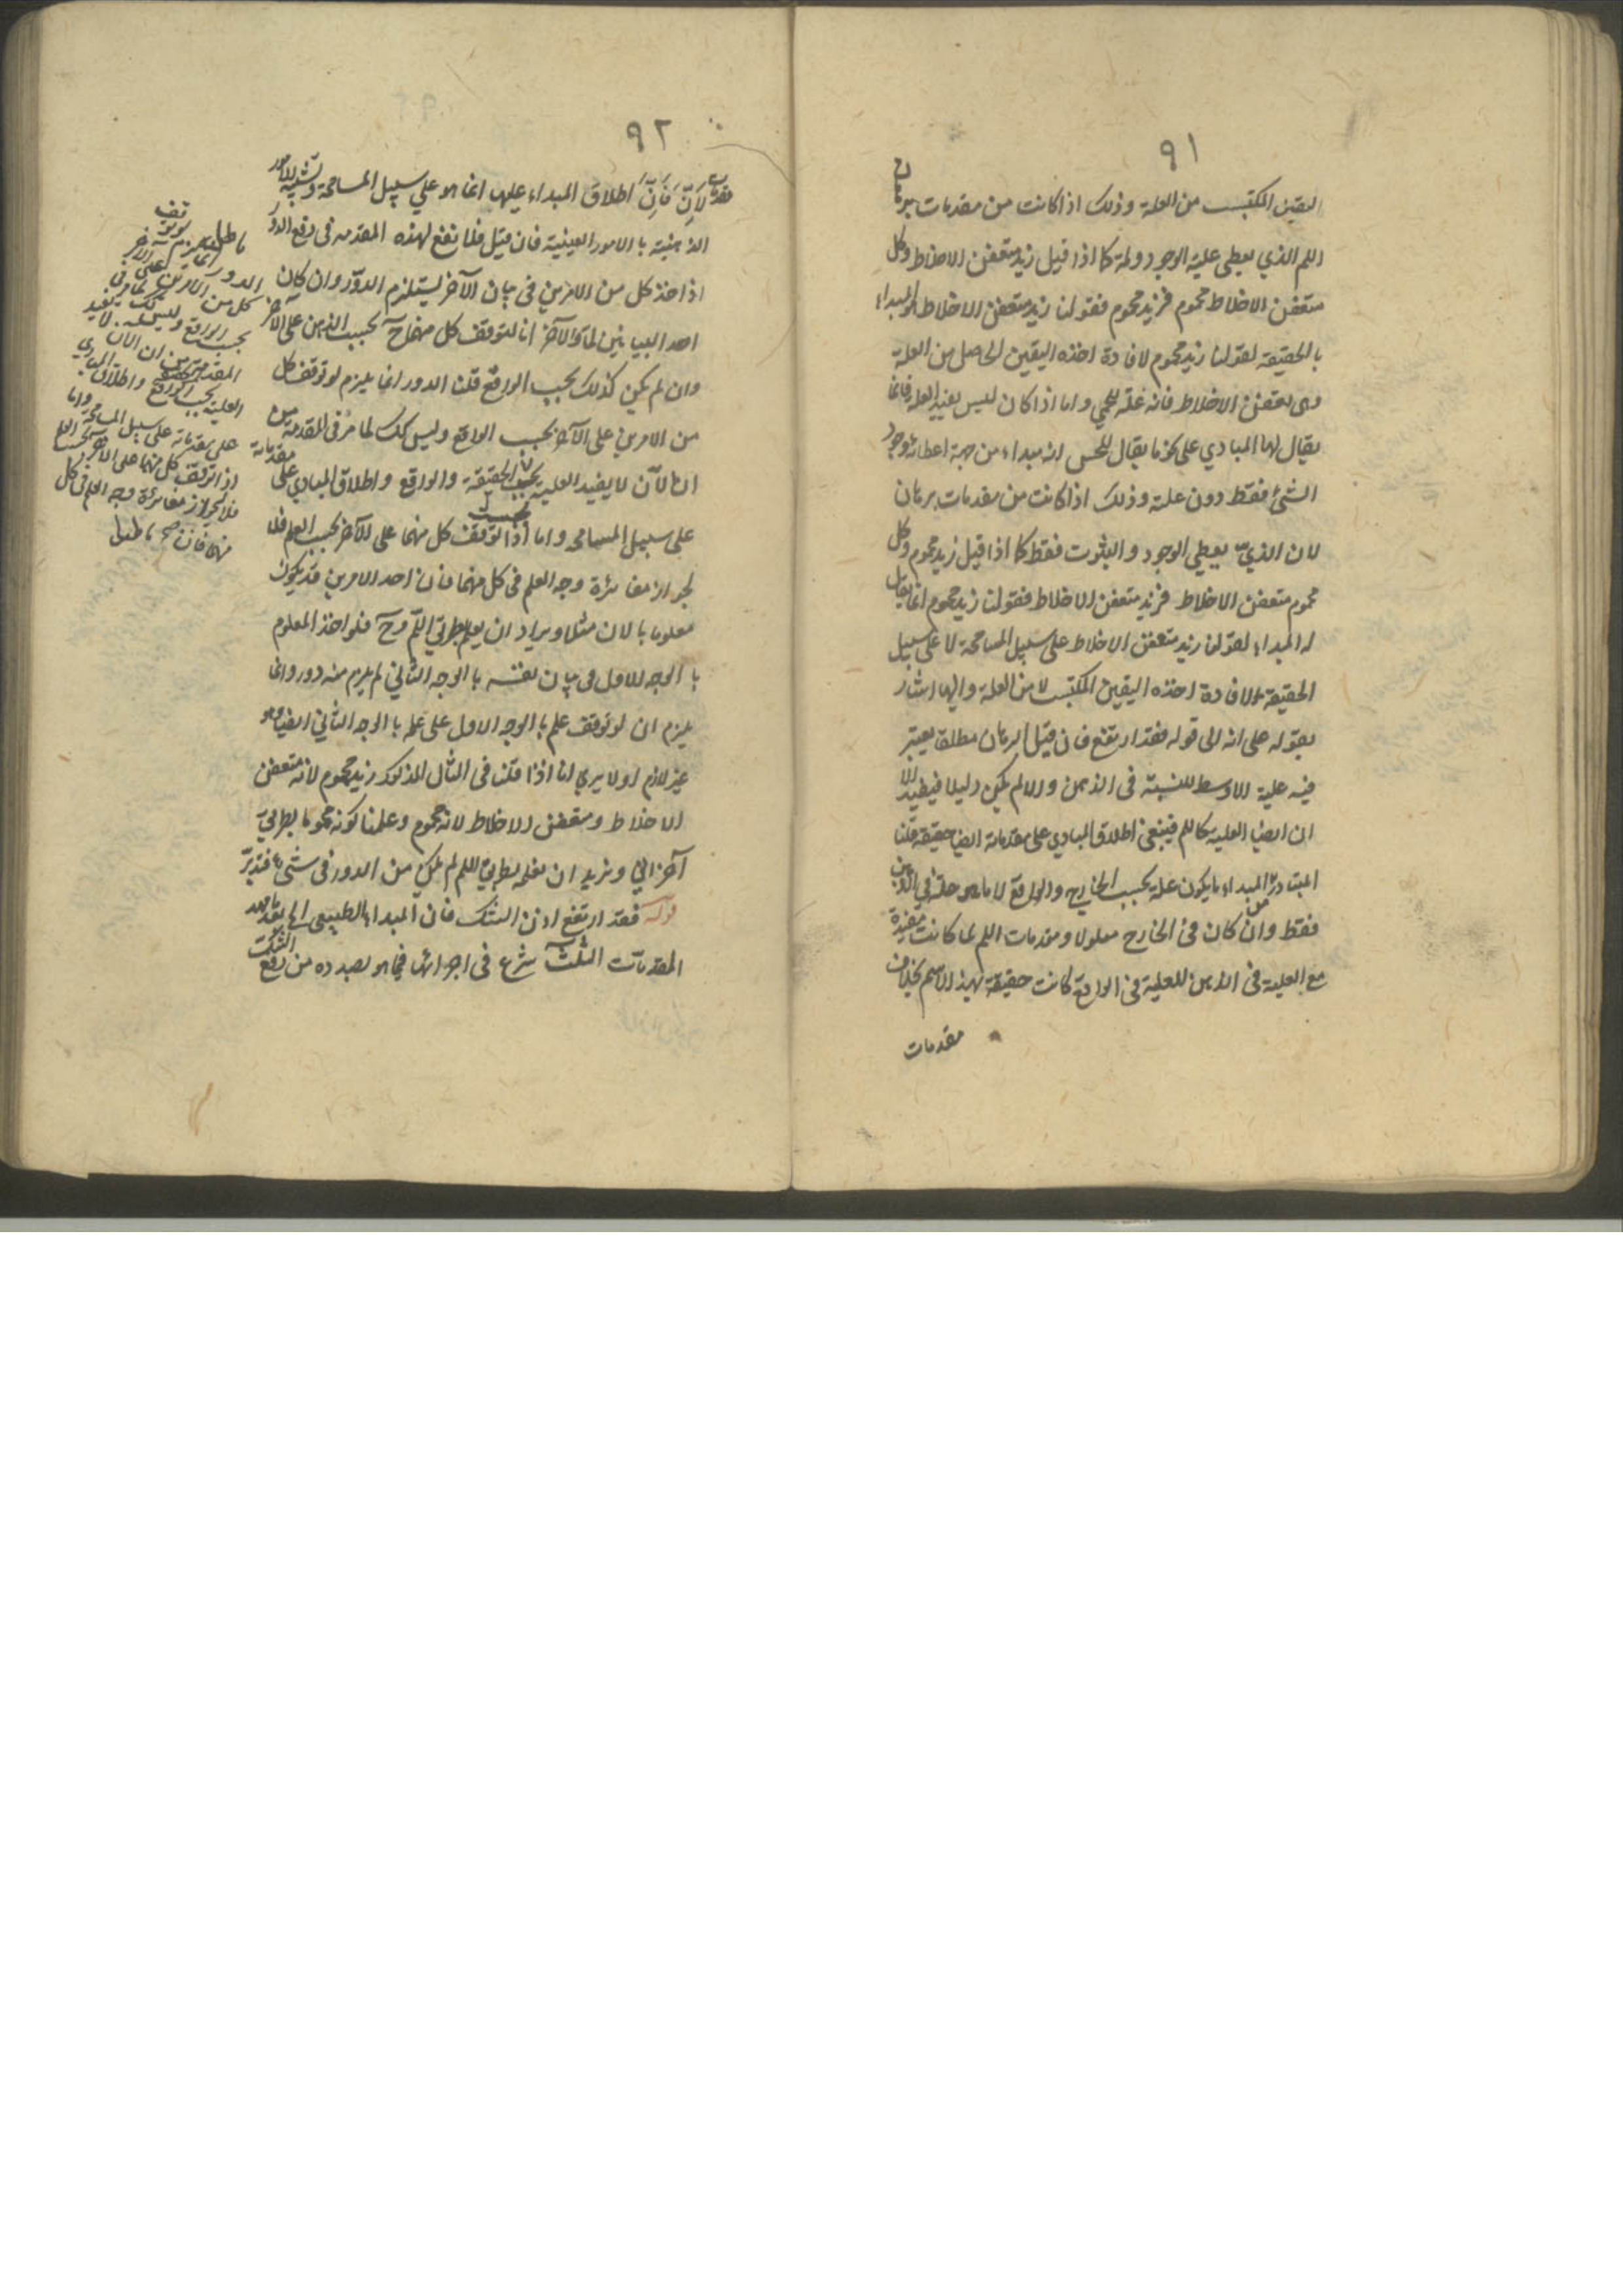 ٩١
اليقين المكتسب من العلة وذلك اذا كانت من مقدمات برهان
اللم الذي يعطى علية الوجود ولمه كما اذا قيل زيد متعفن الاخلاط وكل
متعفن الاخلاط محموم فزيد محموم فقولنا زيد متعفن الاخلاط هو المبداء
بالحقيقة لقولنا زيد محموم لافادة اخذه اليقين الحاصل من العلة
وهى تعفن الاخلاط فانه علة للحمي واما اذا كان ليس يفيد العلة فانما
يقال لها المبادي على نحو ما يقال للحس انه مبداء من جهة اعطائه وجود
الشئ فقط دون علته وذلك اذا كانت من مقدمات برهان
لان الذي يعطي الوجود والثبوت فقط كما اذا قيل زيد محموم وكل
محموم متعفن الاخلاط فزيد متعفن الاخلاط فقولنا زيد محموم انما يقال
له المبداء لقولنا زيد متعفن الاخلاط على سبيل المسامحة لا على سبيل
الحقيقة لافادة اخذه اليقين المكتسب لا من العلة واليها اشار
بقوله على انه الى قوله فقد ارتفع فان قيل البرهان مطلقا يعتبر
فيه علية الاوسط للنسبة فى الذهن والا لم يكن دليلا فيفيد
ان ايضا العلية كاللم فينبغى اطلاق المبادي على مقدماته ايضا حقيقة قلنا
المتبادر من المبداء ما يكون علة بحسب الخارج والواقع لا ما هو علة فى الذهن
فقط وان كان فى الخارج معلولا ومقدمات اللم لما كانت مفيدة
مع العلية فى الذهن للعلية فى الواقع كانت حقيقة بهذا الاسم بخلاف
مقدمات
٩٢
مقدمات لان فان اطلاق المبداء عليها انما هو علي سبيل المسامحة وتشبيه للامور
الذهنية بالامور العينية فان قيل فلا نفع لهذه المقدمه فى دفع الدور
اذ اخذ كل من الامرين فى بيان الآخر يستلزم الدور وان كان
احد البيانين لميا والآخر انيا لتوقف كل منهما ح بحسب الذهن على الآخر
وان لم يكن كذلك بحسب الواقع قلنا الدور انما يلزم لو توقف كل
من الامرين على الآخر بحسب الواقع وليس كك لما مر فى المقدمة من
ان الآن لا يفيد العلية بحسب الحقيقة والواقع واطلاق المبادي على مقدماته
على سبيل المسامحه واما اذا توقف كل منهما على الآخر بحسب العلم فلا
لجواز مغائرة وجه العلم فى كل منهما فان احد الامرين قد يكون
معلوما بالان مثلا ويراد ان يعلم بطريق اللم وح فلو اخذ المعلوم
بالوجه الاول فى بيان نفسه بالوجه الثاني لم يلزم منه دور وانما
يلزم ان لو توقف علم بالوجه الاول على علمه بالوجه الثاني ايضا وهو
غير لازم اولا يري انا اذا قلنا فى المثال المذكور زيد محموم لانه متعفن
الاخلاط ومتعفن الاخلاط لانه محموم وعلمنا كونه محموما بطريق
آخر اني ونريد ان نعلمه بطريق اللم لم يكن من الدور فى شئ فتدبر
قوله فقد ارتفع اذن الشك فان المبداء الطبيعى الخ بعد ما مهد
المقدمات الثلث شرع فى اجرائها فيما هو بصدده من رفع الشك
الدور انما يلزم لو توقف
كل من الامرين على الآخر
بحسب الواقع وليس كك لما مر فى
المقدمة من ان الان لا يفيد
العلية بحسب الواقع واطلاق المبادي
على مقدماته على سبيل المسامحة واما
اذا توقف كل منهما على الآخر بحسب العلم
فلا لجواز مغائرة وجه العلم فى كل
منهما فان صح باطبل